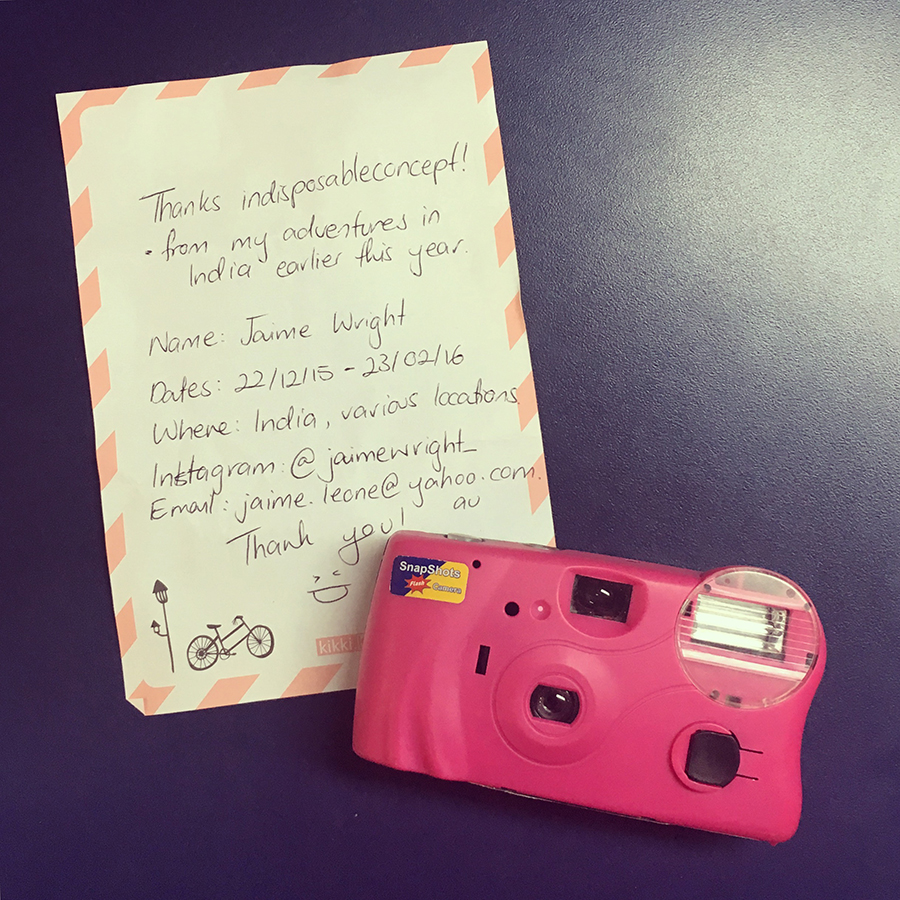 Thanks indisposableconcept!
• from my adventures in
India earlier this year.
Name: Jaime Wright
Dates: 22/12/15 - 23/02/16
Where: India, various locations.
Instagram: @jaimewright_
Email: jaime.leone@yahoo.com.
au
Thank you!
kikki
SnapShots
Flash Camera